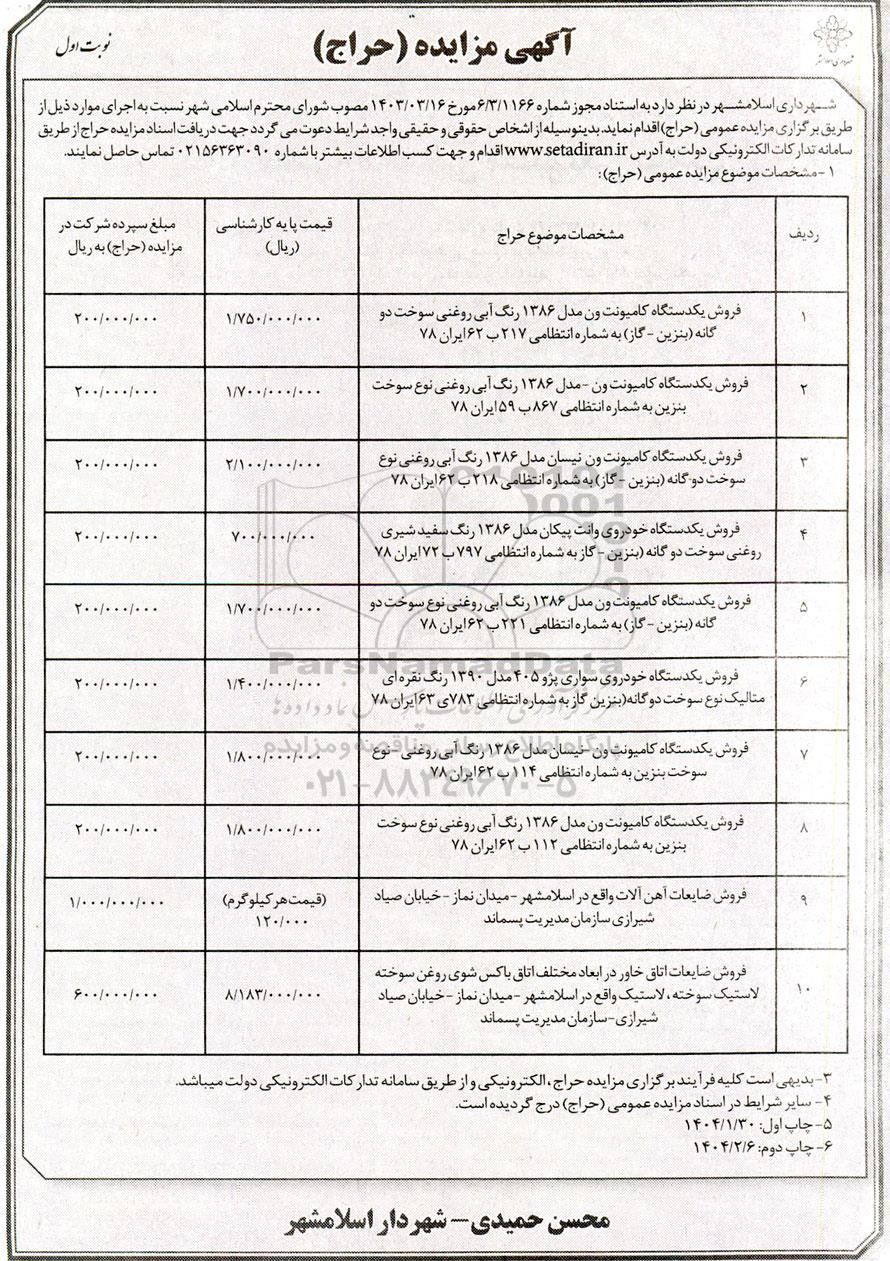 آگهی مزایده (حراج)
نوبت اول
شهرداری اسلامشهر در نظر دارد به استناد مجوز شماره ۶/۳/۱۱۶۶ مورخ ۱۴۰۳/۰۳/۱۶ مصوب شورای محترم اسلامی شهر نسبت به اجرای موارد ذیل از
طریق برگزاری مزایده عمومی (حراج) اقدام نماید. بدینوسیله از اشخاص حقوقی و حقیقی واجد شرایط دعوت می گردد جهت دریافت اسناد مزایده حراج از طریق
سامانه تدارکات الکترونیکی دولت به آدرس www.setadiran.ir اقدام و جهت کسب اطلاعات بیشتر با شماره ۰۲۱۵۶۳۶۳۰۹۰ تماس حاصل نمایند.
۱-مشخصات موضوع مزایده عمومی (حراج):
ردیف
مشخصات موضوع حراج
قیمت پایه کارشناسی
(ریال)
مبلغ سپرده شرکت در
مزایده (حراج) به ریال
۱
فروش یکدستگاه کامیونت ون مدل ۱۳۸۶ رنگ آبی روغنی سوخت دو
گانه (بنزین - گاز) به شماره انتظامی ۲۱۷ ب ۶۲ ایران ۷۸
۱/۷۵۰/۰۰۰/۰۰۰
۲۰۰/۰۰۰/۰۰۰
۲
فروش یکدستگاه کامیونت ون -مدل ۱۳۸۶ رنگ آبی روغنی نوع سوخت
بنزین به شماره انتظامی ۸۶۷ ب ۵۹ ایران ۷۸
۱/۷۰۰/۰۰۰/۰۰۰
۲۰۰/۰۰۰/۰۰۰
۳
فروش یکدستگاه کامیونت ون نیسان مدل ۱۳۸۶ رنگ آبی روغنی نوع
سوخت دو گانه (بنزین - گاز) به شماره انتظامی ۲۱۸ ب ۶۲ ایران ۷۸
۲/۱۰۰/۰۰۰/۰۰۰
۲۰۰/۰۰۰/۰۰۰
۴
فروش یکدستگاه خودروی وانت پیکان مدل ۱۳۸۶ رنگ سفید شیری
روغنی سوخت دو گانه (بنزین - گاز به شماره انتظامی ۷۹۷ ب ۷۲ ایران ۷۸
۷۰۰/۰۰۰/۰۰۰
۲۰۰/۰۰۰/۰۰۰
۵
فروش یکدستگاه کامیونت ون مدل ۱۳۸۶ رنگ آبی روغنی نوع سوخت دو
گانه (بنزین - گاز) به شماره انتظامی ۲۲۱ ب ۶۲ ایران ۷۸
۱/۷۰۰/۰۰۰/۰۰۰
۲۰۰/۰۰۰/۰۰۰
ParsNamadData
۶
فروش یکدستگاه خودروی سواری پژو ۴۰۵ مدل ۱۳۹۰ رنگ نقره ای
متالیک نوع سوخت دو گانه (بنزین گاز به شماره انتظامی ۷۸۳ی ۶۳ ایران ۷۸
۱/۴۰۰/۰۰۰/۰۰۰
۲۰۰/۰۰۰/۰۰۰
پایگاه اطلاع رسانی مناقصه و مزایده
۷
فروش یکدستگاه کامیونت ون -نیسان مدل ۱۳۸۶ رنگ آبی روغنی -نوع
سوخت بنزین به شماره انتظامی ۱۱۴ ب ۶۲ ایران ۷۸
۱/۸۰۰/۰۰۰/۰۰۰
۲۰۰/۰۰۰/۰۰۰
۰۲۱-۸۸۳۴۹۶۷۰-۵
۸
فروش یکدستگاه کامیونت ون مدل ۱۳۸۶ رنگ آبی روغنی نوع سوخت
بنزین به شماره انتظامی ۱۱۲ ب ۶۲ ایران ۷۸
۱/۸۰۰/۰۰۰/۰۰۰
۲۰۰/۰۰۰/۰۰۰
۹
فروش ضایعات آهن آلات واقع در اسلامشهر -میدان نماز -خیابان صیاد
شیرازی سازمان مدیریت پسماند
(قیمت هر کیلوگرم)
۱۲۰/۰۰۰
۱/۰۰۰/۰۰۰/۰۰۰
۱۰
فروش ضایعات اتاق خاور در ابعاد مختلف اتاق باکس شوی روغن سوخته
لاستیک سوخته ، لاستیک واقع در اسلامشهر -میدان نماز -خیابان صیاد
شیرازی-سازمان مدیریت پسماند
۸/۱۸۳/۰۰۰/۰۰۰
۶۰۰/۰۰۰/۰۰۰
۳-بدیهی است کلیه فرآیند برگزاری مزایده حراج ، الکترونیکی و از طریق سامانه تدارکات الکترونیکی دولت میباشد.
۴- سایر شرایط در اسناد مزایده عمومی (حراج) درج گردیده است.
۵-چاپ اول: ۱۴۰۴/۱/۳۰
۶-چاپ دوم: ۱۴۰۴/۲/۶
محسن حمیدی - شهردار اسلامشهر